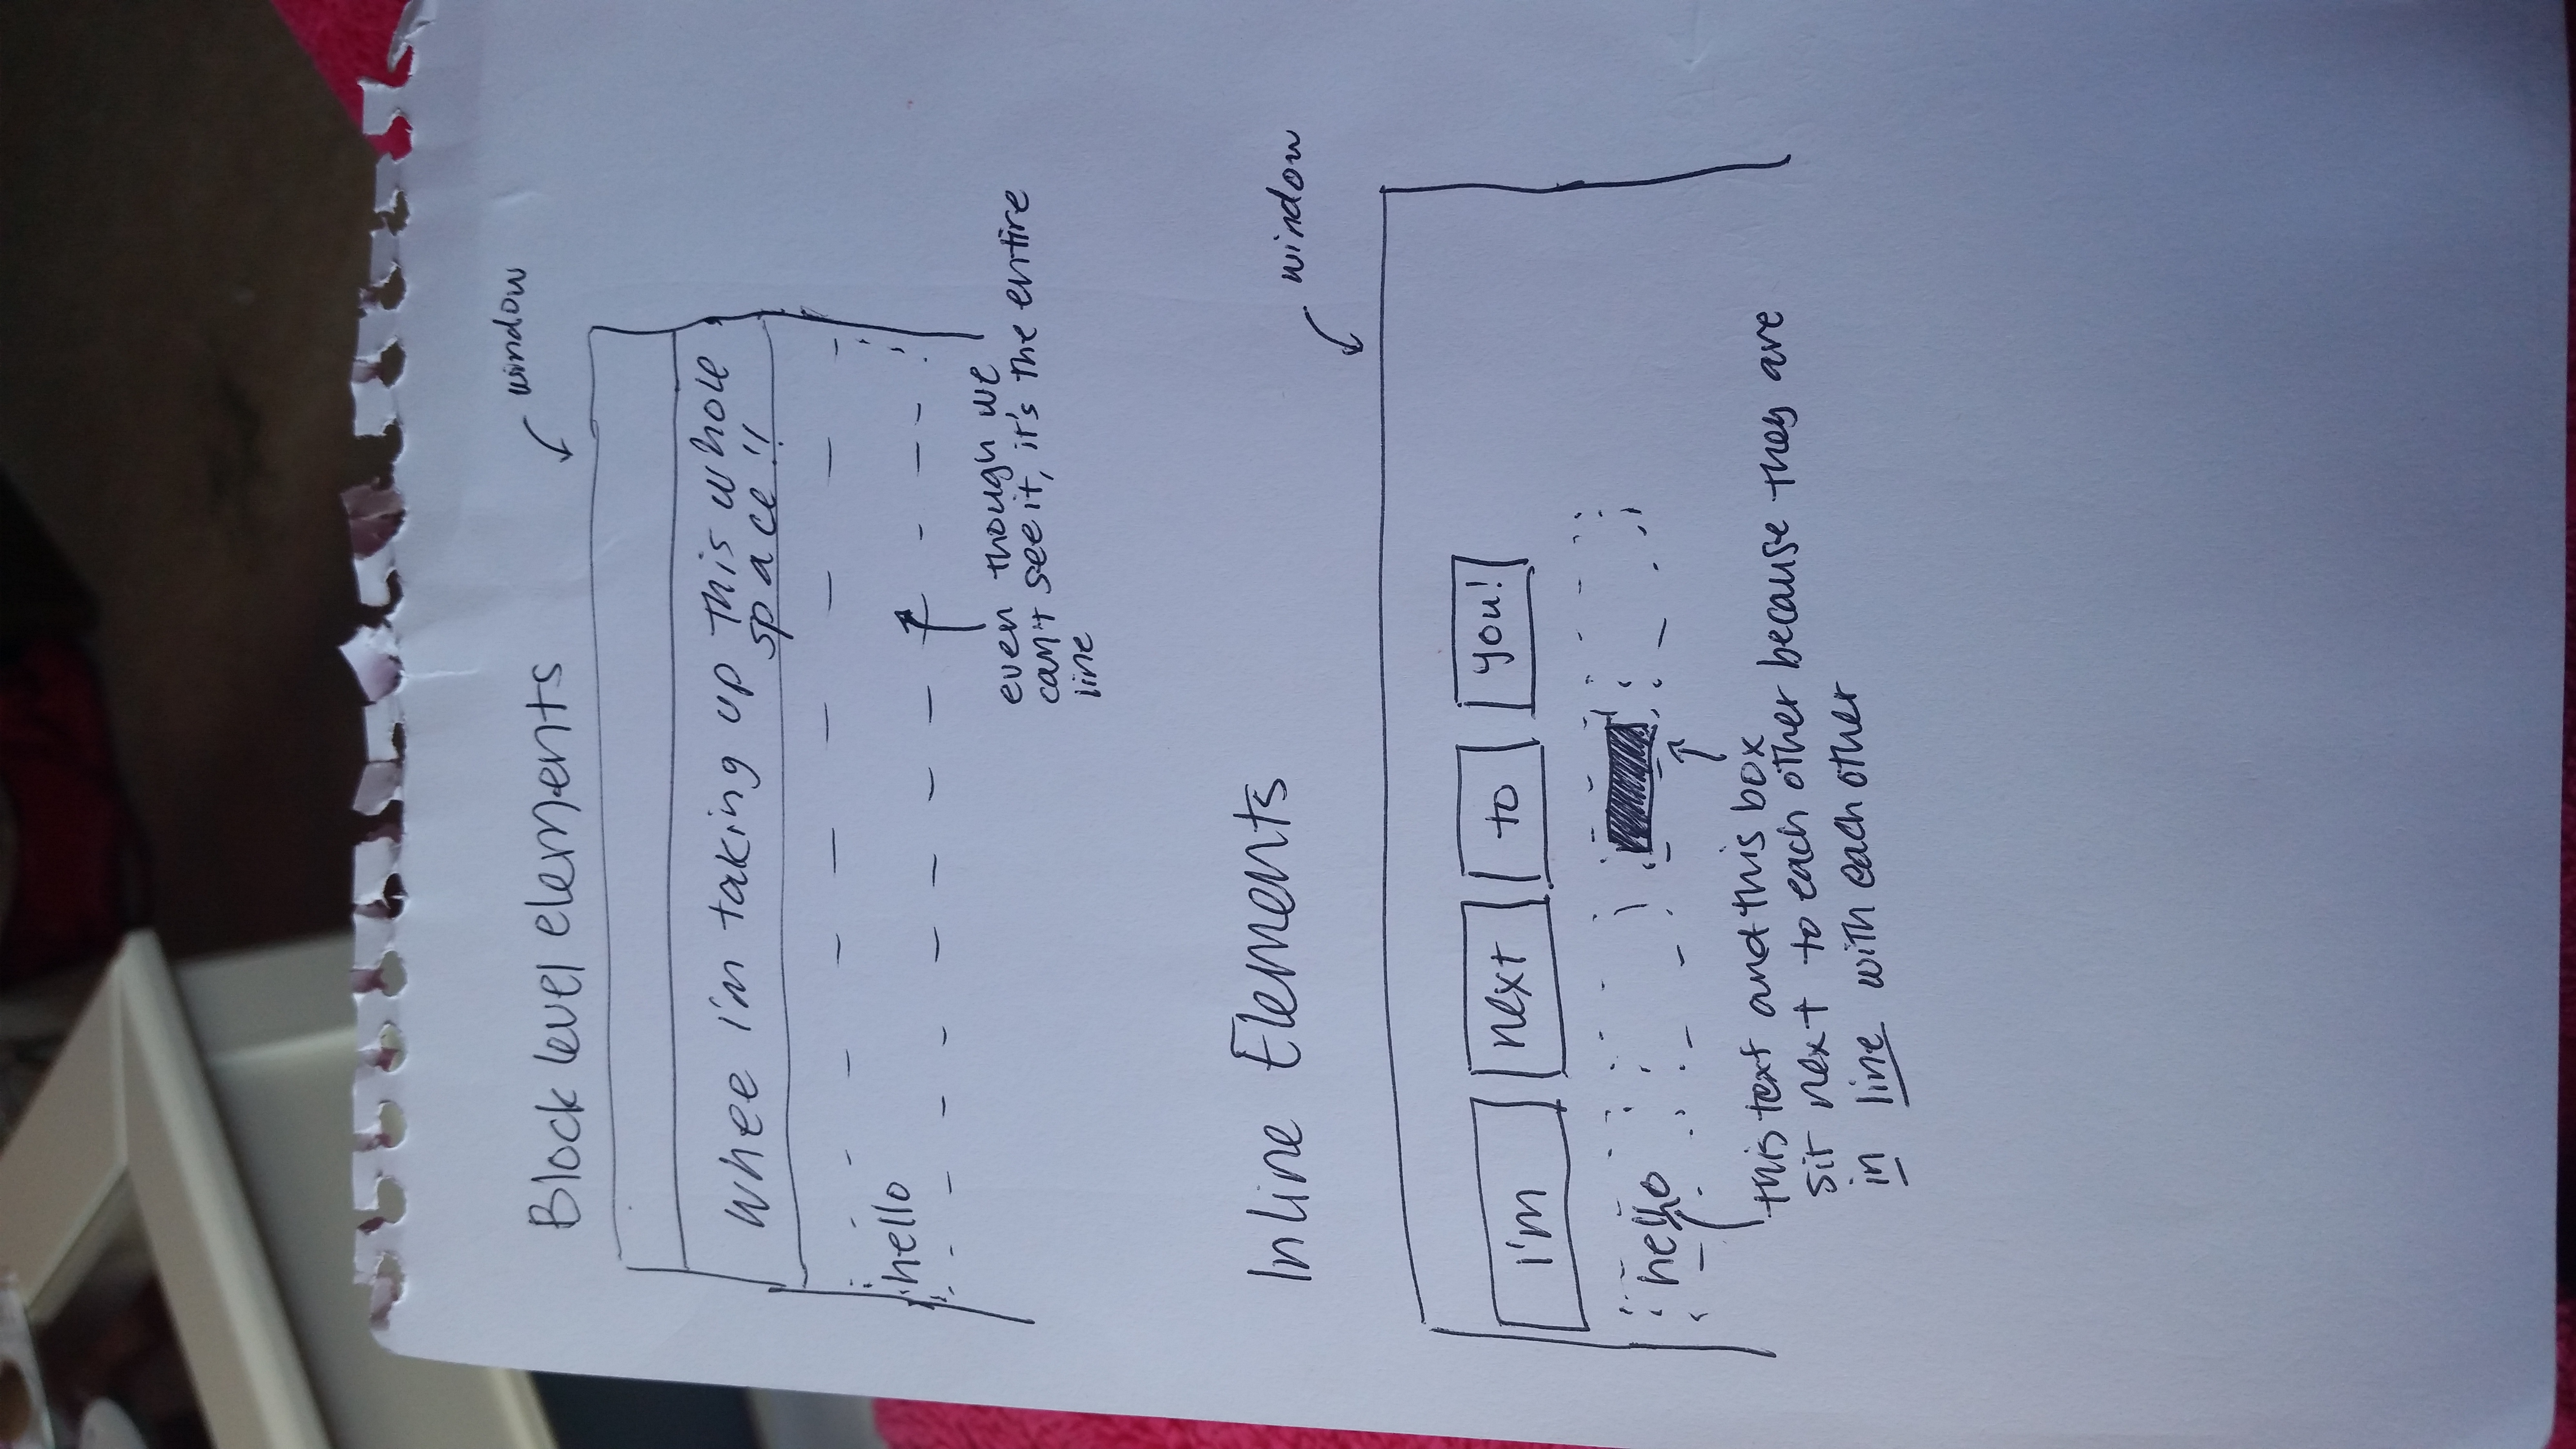 Block level elements
window
whee i'm taking up this whole
space!!
hello
even though we
can't see it, it's the entire
line
Inline Elements
window
i'm next to you!
hello
this text and this box
sit next to each other because they are
in line with each other